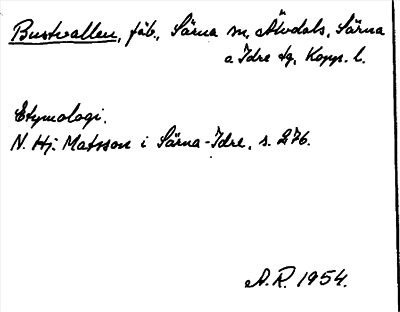 Bustvallen, fäb., Särna sn, Älvdals, Särna
o Idre tg, Kopp. l.
Etymologi.
N. Hj. Matsson i Särna-Idre, s. 276.
A.R. 1954.